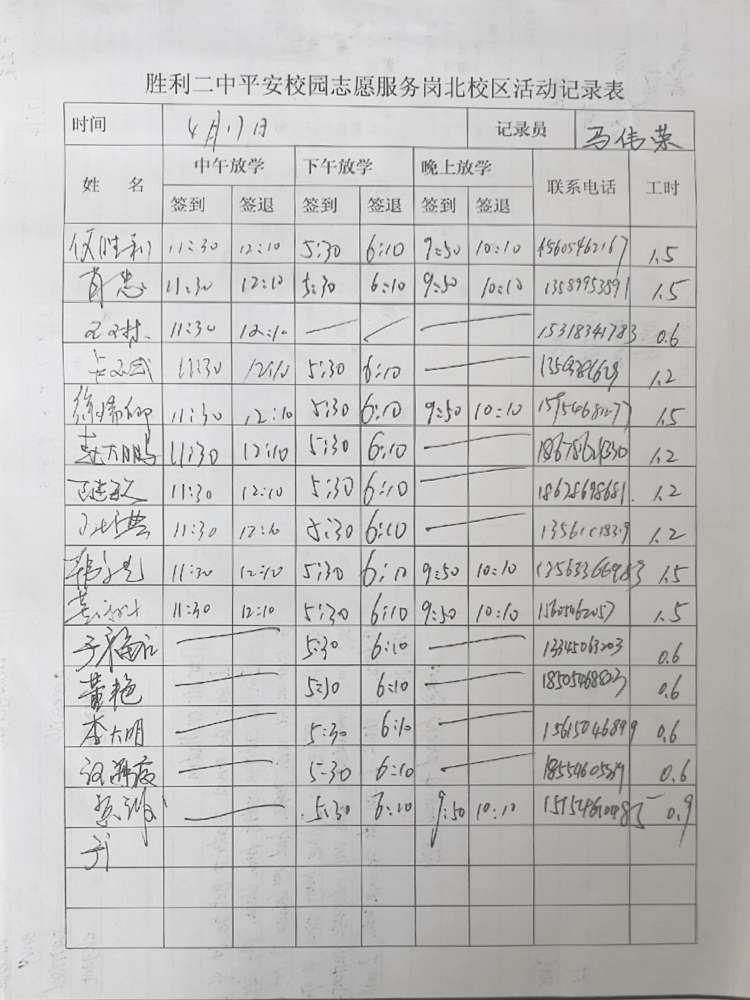 胜利二中平安校园志愿服务岗北校区活动记录表
时间 4月17日 记录员 马伟荣
姓 名 中午放学 下午放学 晚上放学 联系电话 工时
签到 签退 签到 签退 签到 签退
任胜利 11:30 12:10 5:30 6:10 9:50 10:10 15605462167 1.5
肖忠 11:30 12:10 5:30 6:10 9:50 10:10 13589953891 1.5
11:30 12:10 — — — 15318341783 0.6
11:30 12:10 5:30 6:10 — 1.2
11:30 12:10 5:30 6:10 9:50 10:10 1.5
赵大鹏 11:30 12:10 5:30 6:10 — 1.2
11:30 12:10 5:30 6:10 — 18678698681 1.2
11:30 12:10 5:30 6:10 — 1.2
11:30 12:10 5:30 6:10 9:50 10:10 1.5
11:30 12:10 5:30 6:10 9:50 10:10 15605462057 1.5
— 5:30 6:10 — 13345063203 0.6
黄艳 — 5:30 6:10 — 18505468803 0.6
李大明 — 5:30 6:10 — 15615046899 0.6
— 5:30 6:10 — 0.6
— 5:30 6:10 9:50 10:10 0.9